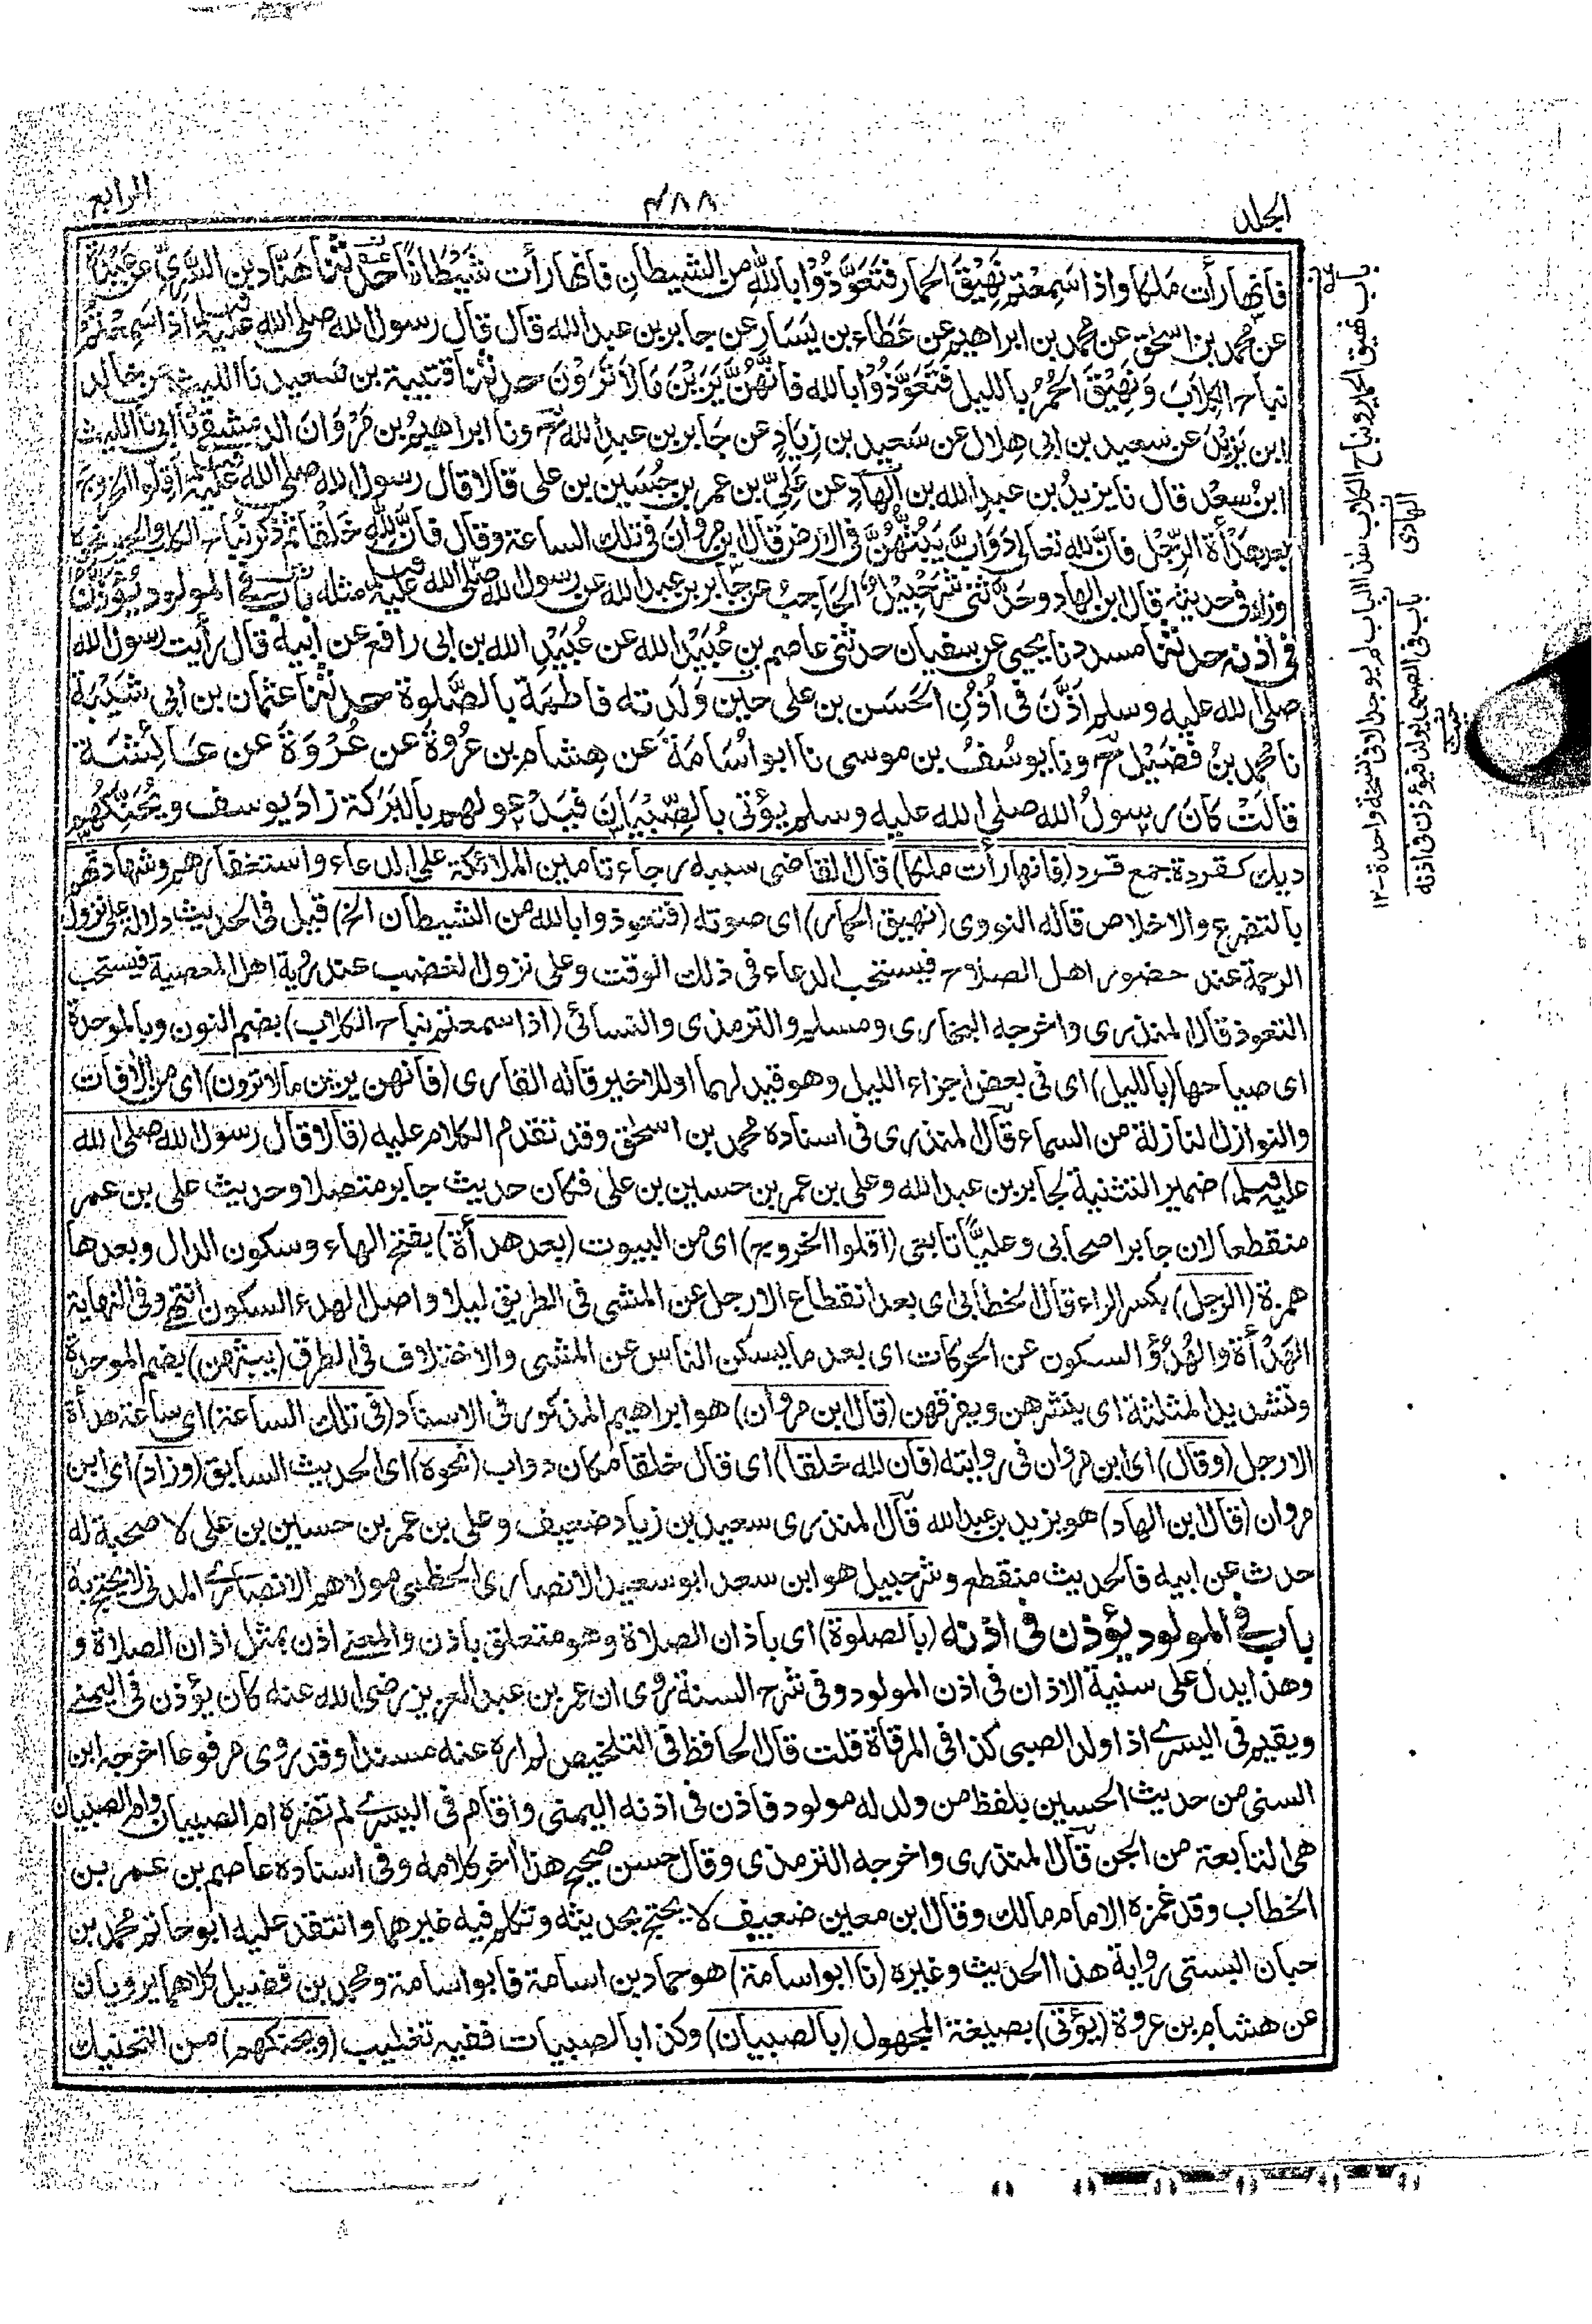 الجلد
٤٨٨
الرابع
فانها رأت ملكا واذا سَمِعْتم نَهِيْقَ الحمار فَتَعَوَّذُوْا بالله من الشيطان فانها رأت شَيْطَانًا حدثنا هَنَّاد بن السَّرِيِّ عن عَبْدَةَ
عن محمد بن اسحٰق عن محمد بن ابراهيم عن عَطَاء بن يَسَار عن جابر بن عبد الله قال قال رسول الله صلى الله عليه وسلم اذا سَمِعْتُمْ
نباح الكِلَابَ وَنَهِيْقَ الحُمُرِ بالليل فَتَعَوَّذُوْا بالله فانَّهُنَّ يَرَيْنَ مَا لَا تَرَوْنَ حدثنا قتيبة بن سعيد نا الليث عن خالد
ابن يَزِيْدَ عن سعيد بن ابى هِلَال عن سَعِيد بن زِيَادٍ عن جَابر بن عبد الله ح ونا ابراهيمُ بن مَرْوَانَ الدمشقى نا ابى نا الليث
ابنُ سعْد قال نا يزيدُ بن عبد الله بن الهادِ عن عَلِيِّ بن عمر بن حُسَيْن بن على قالا قال رسول الله صلى الله عليه وسلم اَقِلُّوا الخروجَ
بعد هَدْأَة الرِّجْل فانَّ لله تعالى دَوَابَّ يَبُثُّهُنَّ فى الارض قال ابن مروانَ فى تلك الساعة وقال فانَّ لله خَلْقًا ثم ذكر نُبَاحَ الكلاب والحمير نحوه
وزاد فى حديثه قال ابن الهاد وحَدَّثنى شُرَحْبِيْلُ الحَاجِبُ عن جَابر بن عبد الله عن رسول الله صلى الله عليه وسلم مثله باب فى المولود يُؤَذَّنُ
فى اذنه حدثنا مسدد نا يحيى عن سفيان حدثنى عاصم بن عُبَيْد الله عن عُبَيْدِ الله بن ابى رافع عن ابيه قال رأيت رسول الله
صلى الله عليه وسلم اَذَّنَ فى اُذُنِ الحَسَن بن على حين وَلَدَته فاطمَة بالصَّلوة حدثنا عثمان بن ابى شَيْبَة
نا محمد بنُ فُضَيْل ح ونا يوسُفُ بن موسى نا ابو اُسَامَة عن هِشام بن عُرْوَة عن عُرْوَةَ عن عَائِشَة
قالَتْ كانَ رسولُ الله صلى الله عليه وسلم يؤتى بالصِّبْيَانِ فيَدْعو لهم بالبَرَكة زاد يوسف ويُحَنِّكُهُم
ديك كقردة جمع قرد (فانها رأت ملكا) قال القاضى سببه رجاء تامين الملائكة على الدعاء واستغفارهم وشهادتهم
بالتضرع والاخلاص قاله النووى (نهيق الحمار) اى صوته (فتعوذوا بالله من الشيطان الخ) قيل فى الحديث دلالة على نزول
الرحمة عند حضور اهل الصلاح فيستحب الدعاء فى ذلك الوقت وعلى نزول الغضب عند رؤية اهل المعصية فيستحب
التعوذ قال المنذرى واخرجه البخارى ومسلم والترمذى والنسائى (اذا سمعتم نباح الكلاب) بضم النون وبالموحدة
اى صياحها (بالليل) اى فى بعض اجزاء الليل وهو قيد لهما او للاخير قاله القارى (فانهن يرين ما لا ترون) اى من الآفات
والنوازل النازلة من السماء قال المنذرى فى اسناده محمد بن اسحٰق وقد تقدم الكلام عليه (قالا قال رسول الله صلى الله
عليه وسلم) ضمير التثنية لجابر بن عبد الله وعلى بن عمر بن حسين بن على فكان حديث جابر متصلا وحديث على بن عمر
منقطعا لان جابرا صحابى وعليًّا تابعى (اقلوا الخروج) اى من البيوت (بعد هدأة) بفتح الهاء وسكون الدال وبعدها
همزة (الرجل) بكسر الراء قال الخطابى اى بعد انقطاع الارجل عن المشى فى الطريق ليلا واصل الهدء السكون انتهى وفى النهاية
الهَدْأَة والهُدُوّ السكون عن الحركات اى بعد ما يسكن الناس عن المشى والاختلاف فى الطرق (يبثهن) بضم الموحدة
وتشديد المثلثة اى ينشرهن ويفرقهن (قال ابن مروان) هو ابراهيم المذكور فى الاسناد (فى تلك الساعة) اى ساعة هدأة
الارجل (وقال) اى ابن مروان فى روايته (فان لله خلقا) اى قال خلقا مكان دواب (نحوه) اى الحديث السابق (وزاد) اى ابن
مروان (قال ابن الهاد) هو يزيد بن عبد الله قال المنذرى سعيد بن زياد ضعيف وعلى بن عمر بن حسين بن على لا صحبة له
حدث عن ابيه فالحديث منقطع وشرحبيل هو ابن سعد ابو سعيد الانصارى الخطمى مولاهم الانصارى المدنى لا يحتج به
باب فى المولود يؤذن فى اذنه (بالصلوة) اى باذان الصلاة وهو متعلق باذن والمعنى اذن بمثل اذان الصلاة و
وهذا يدل على سنية الاذان فى اذن المولود وفى شرح السنة روى ان عمر بن عبد العزيز رضى الله عنه كان يؤذن فى اليمنى
ويقيم فى اليسرى اذا ولد الصبى كذا فى المرقاة قلت قال الحافظ فى التلخيص لم اره عنه مسندا وقد روى مرفوعا اخرجه ابن
السنى من حديث الحسين بلفظ من ولد له مولود فاذن فى اذنه اليمنى واقام فى اليسرى لم تضره ام الصبيان وام الصبيان
هى التابعة من الجن قال المنذرى واخرجه الترمذى وقال حسن صحيح هذا آخر كلامه وفى اسناده عاصم بن عمر بن
الخطاب وقد غمزه الامام مالك وقال ابن معين ضعيف لا يحتج بحديثه وتكلم فيه غيرهما وانتقد عليه ابو حاتم محمد بن
حبان البستى رواية هذا الحديث وغيره (نا ابو اسامة) هو حماد بن اسامة فابو اسامة ومحمد بن فضيل كلاهما يرويان
عن هشام بن عروة (يؤتى) بصيغة المجهول (بالصبيان) وكذا بالصبيات ففيه تغليب (ويحنكهم) من التحنيك
باب نهيق الحمير ونباح الكلاب هذا الباب لم يوجد الا فى نسخة واحدة ١٢
الهادى
باب فى الصبى يولد فيؤذن فى اذنه